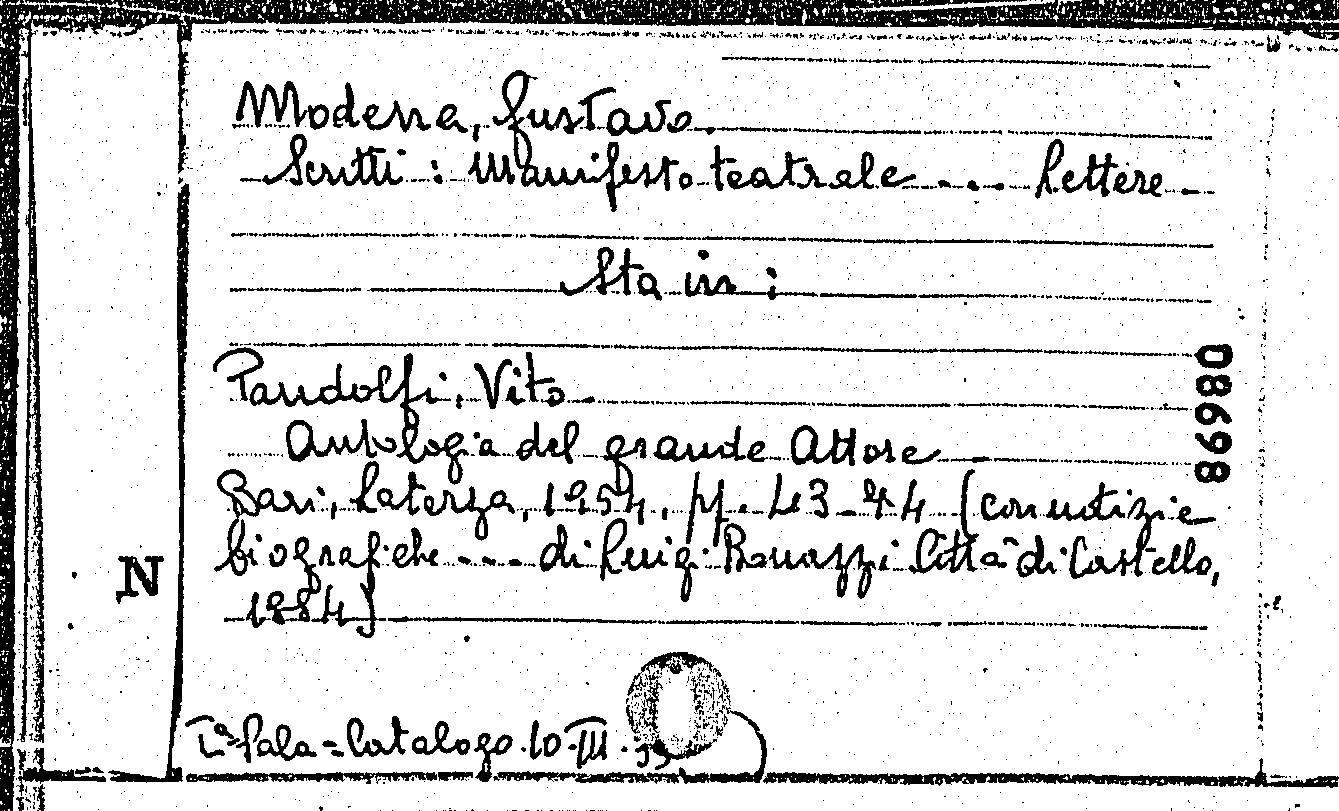 Modena, Gustavo.
Scritti : Manifesto teatrale ... Lettere -
Sta in :
Pandolfi, Vito.
Antologia del grande Attore -
Bari, Laterza, 1954, pp. 43-44 (con notizie
biografiche ... di Luigi Bonazzi Città di Castello,
1884)
N
08698
Iª Sala = Catalogo. 10. III.